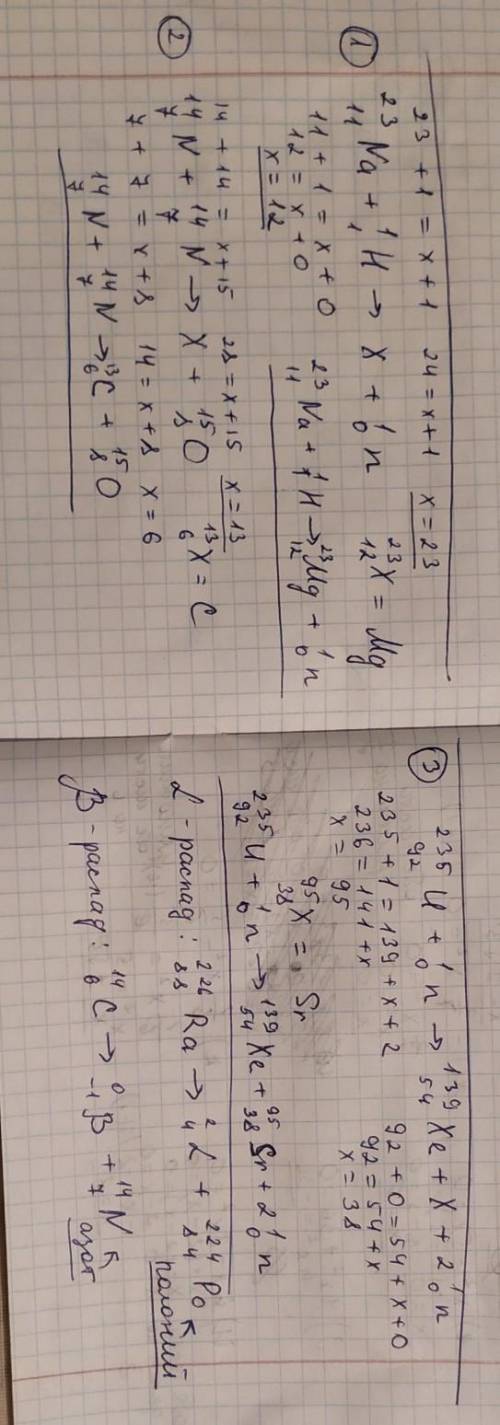 23 + 1 = x + 1 24 = x + 1 x = 23
① ²³₁₁Na + ¹₁H → X + ¹₀n ²³₁₂X = Mg
11 + 1 = x + 0
12 = x + 0
x = 12
²³₁₁Na + ¹₁H → ²³₁₂Mg + ¹₀n
14 + 14 = x + 15 28 = x + 15 x = 13
② ¹⁴₇N + ¹⁴₇N → X + ¹⁵₈O ¹³₆X = C
7 + 7 = x + 8 14 = x + 8 x = 6
¹⁴₇N + ¹⁴₇N → ¹³₆C + ¹⁵₈O
③ ²³⁵₉₂U + ¹₀n → ¹³⁹₅₄Xe + X + 2¹₀n
235 + 1 = 139 + x + 2 92 + 0 = 54 + x + 0
236 = 141 + x 92 = 54 + x
x = 95 x = 38
⁹⁵₃₈X = Sr
²³⁵₉₂U + ¹₀n → ¹³⁹₅₄Xe + ⁹⁵₃₈Sr + 2¹₀n
α - распад: ²²⁶₈₈Ra → ²₄α + ²²⁴₈₄Po
полоний
β - распад: ¹⁴₆C → ⁰₋₁β + ¹⁴₇N
азот